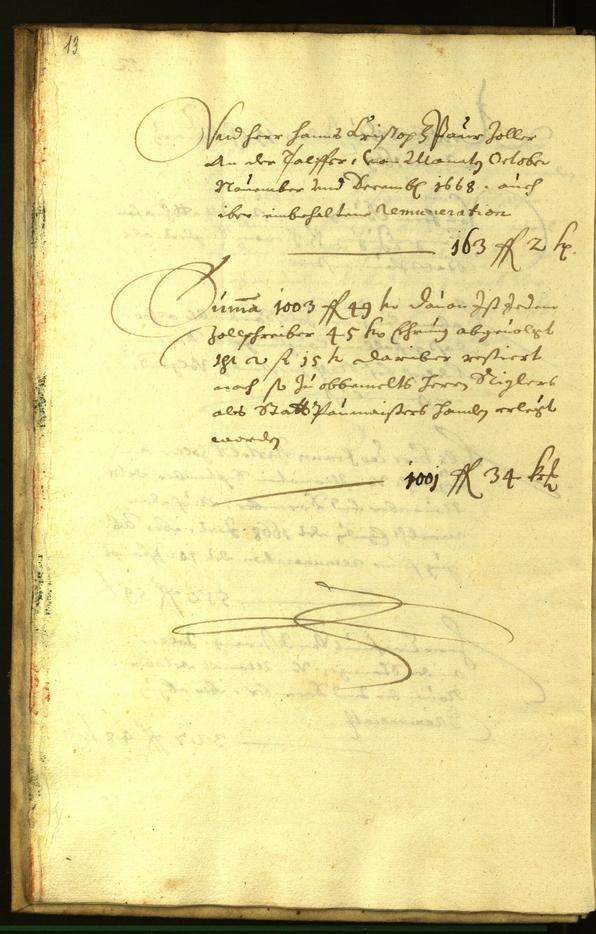 13
Vnd herr Hanns Cristoph Paur Zoller
An der Talffer, von Monats October
Nouember vnd Decemb: 1668. auch
iber einbehaltene Remuneration
163 fl 2 kr.
Suma 1003 fl 49 kr dauon Ist Jedem
Zollschreiber 45 kr Ehrung abgeuolgt
2 fl 15 kr dariber restiert
noch so zu obbemelts Herrn Siglers
als Statt Paumaisters Handen erlegt
worden
1001 fl 34 kr